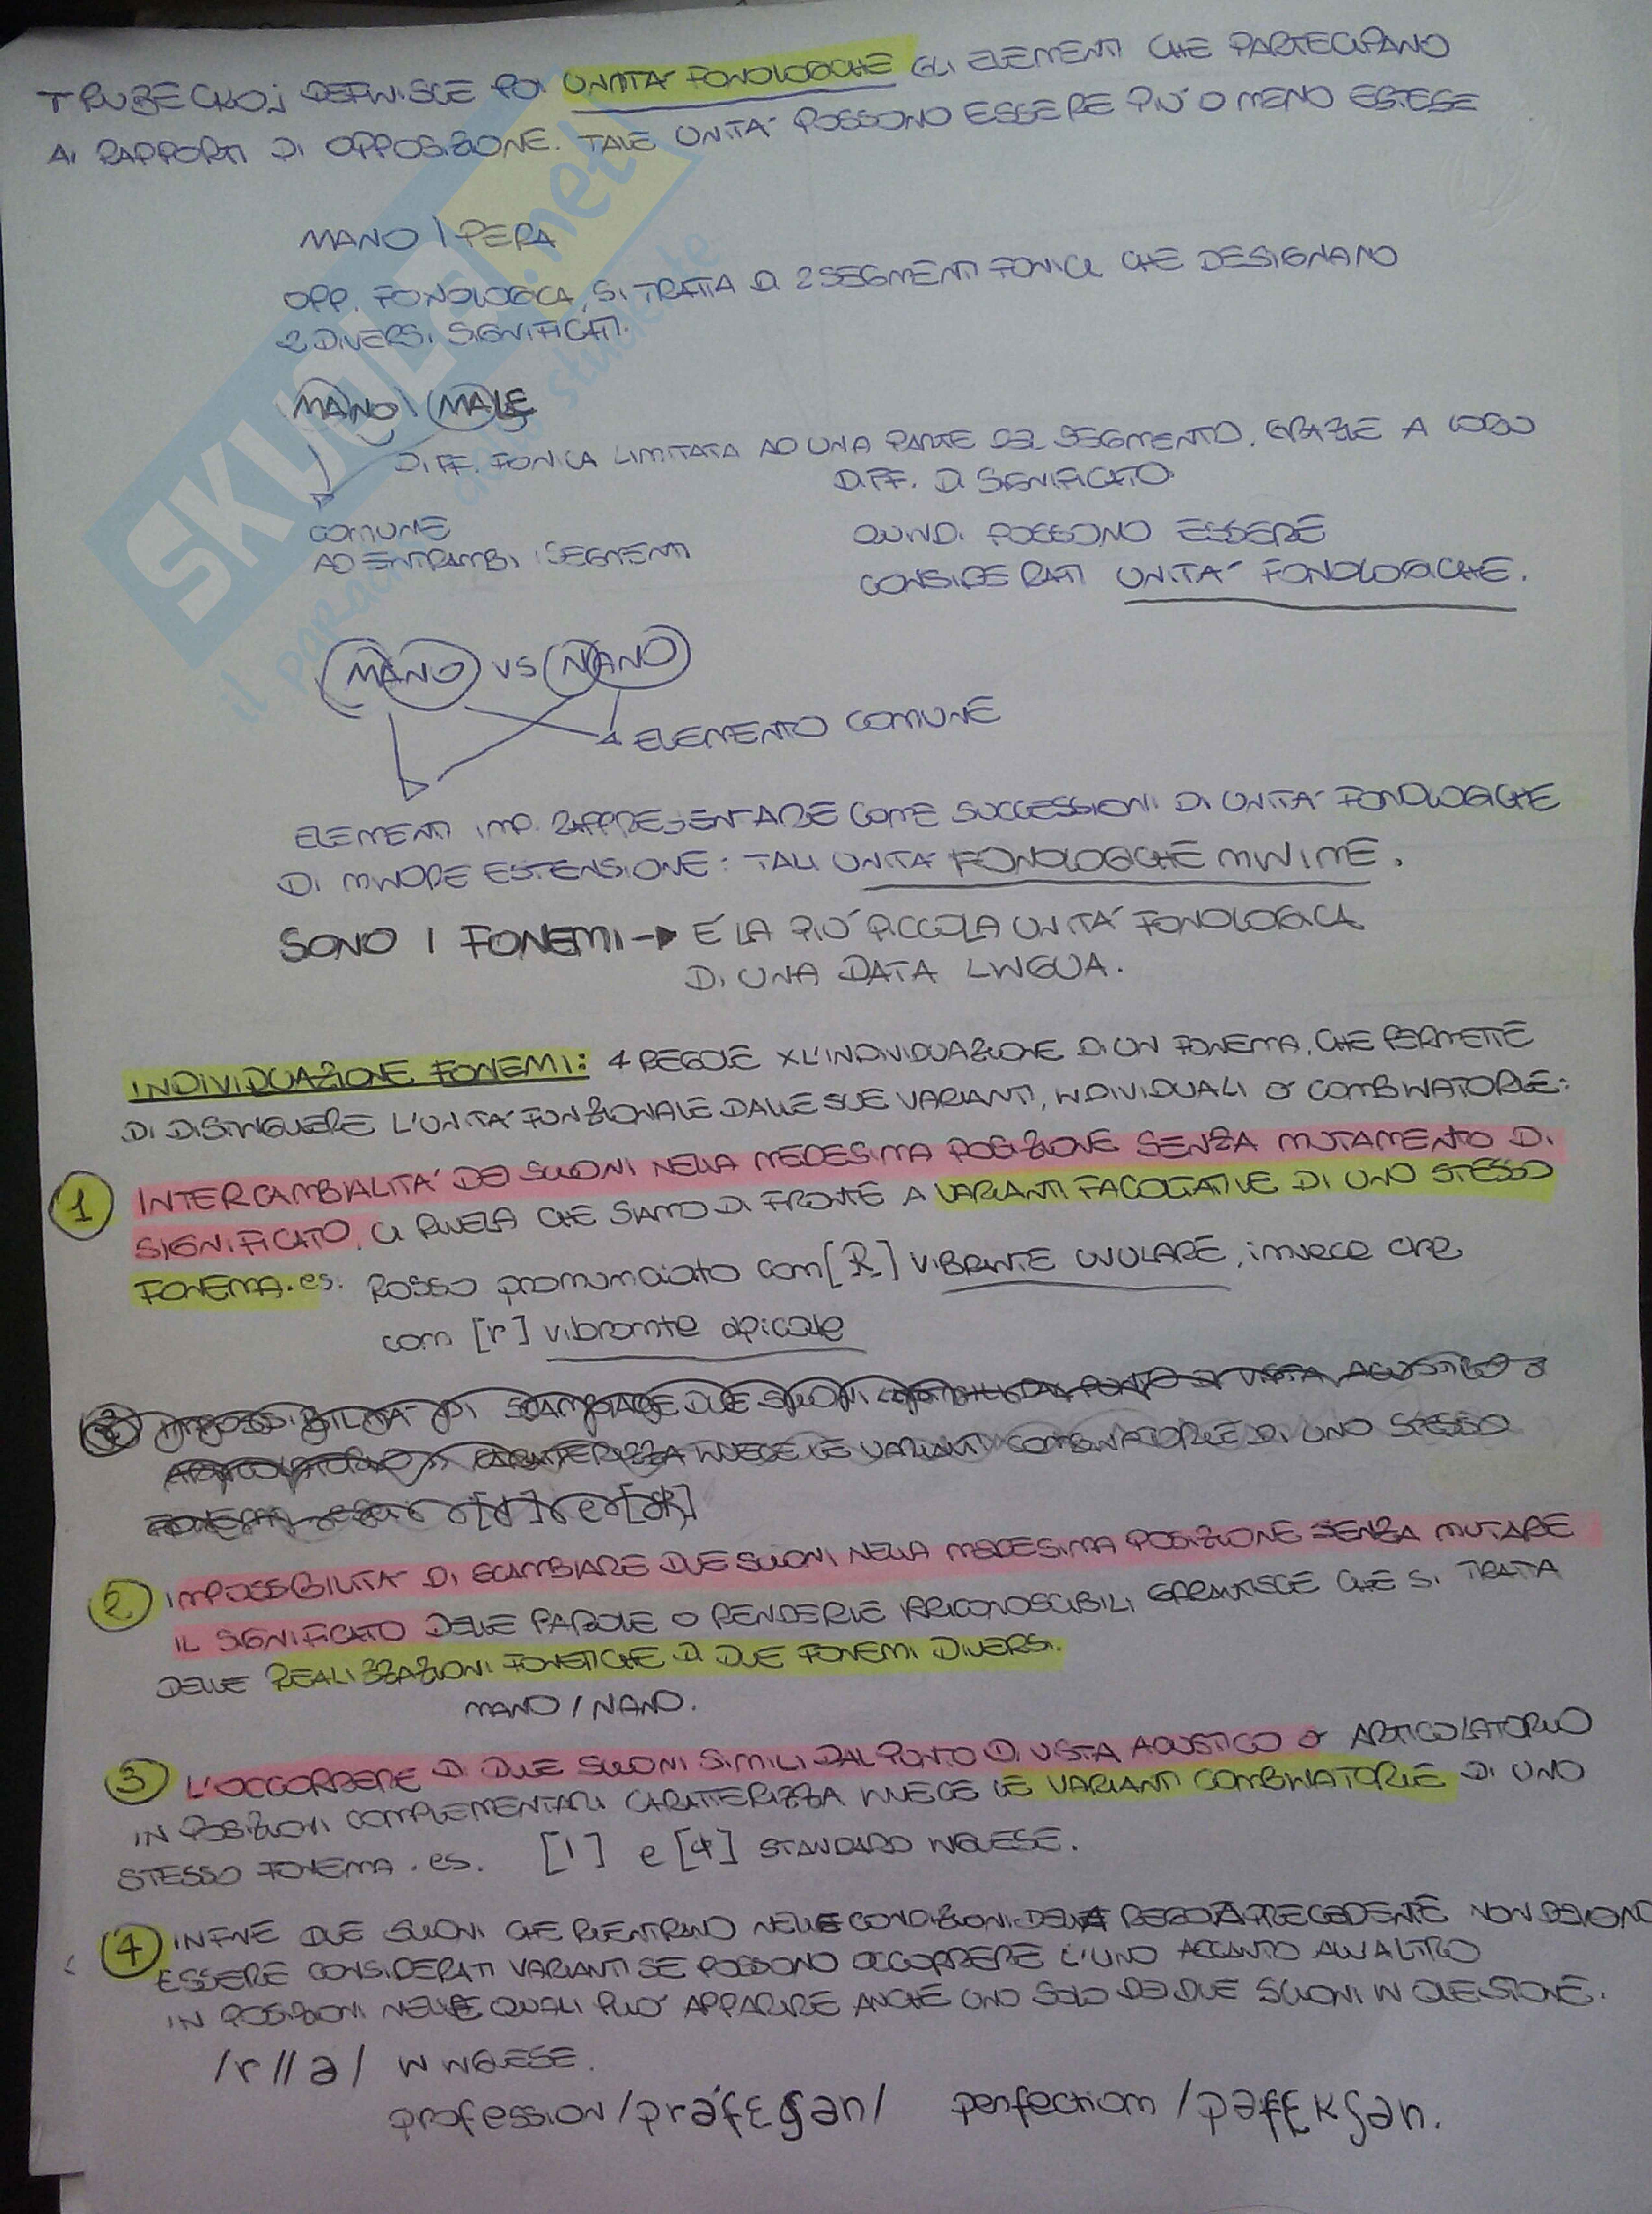 TRUBECKOJ DEFINISCE POI UNITA' FONOLOGICHE GLI ELEMENTI CHE PARTECIPANO
AI RAPPORTI DI OPPOSIZIONE. TALE UNITA' POSSONO ESSERE PIU' O MENO ESTESE
MANO \ PERA
OPP. FONOLOGICA, SI TRATTA DI 2 SEGMENTI FONICI CHE DESIGNANO
2 DIVERSI SIGNIFICATI.
MANO \ MALE
DIFF. FONICA LIMITATA AD UNA PARTE DEL SEGMENTO. GRAZIE A LORO
DIFF. DI SIGNIFICATO
COMUNE
AD ENTRAMBI I SEGMENTI
QUINDI POSSONO ESSERE
CONSIDERATI UNITA' FONOLOGICHE.
MANO VS NANO
ELEMENTO COMUNE
ELEMENTI IMP. RAPPRESENTARE COME SUCCESSIONI DI UNITA' FONOLOGICHE
DI MINORE ESTENSIONE: TALI UNITA' FONOLOGICHE MINIME.
SONO I FONEMI → E' LA PIU' PICCOLA UNITA' FONOLOGICA
DI UNA DATA LINGUA.
INDIVIDUAZIONE FONEMI: 4 REGOLE X L'INDIVIDUAZIONE DI UN FONEMA, CHE PERMETTE
DI DISTINGUERE L'UNITA' FUNZIONALE DALLE SUE VARIANTI, INDIVIDUALI O COMBINATORIE:
1 INTERCAMBIALITA' DEI SUONI NELLA MEDESIMA POSIZIONE SENZA MUTAMENTO DI
SIGNIFICATO, CI RIVELA CHE SIAMO DI FRONTE A VARIANTI FACOTATIVE DI UNO STESSO
FONEMA. es: ROSSO pronunciato con [R] VIBRANTE UVULARE, invece che
con [r] vibrante apicale
2 IMPOSSIBILITA' DI SCAMBIARE DUE SUONI SIMILI DAL PUNTO DI VISTA ACUSTICO O
ARTICOLATORIO CARATTERIZZA INVECE LE VARIANTI COMBINATORIE DI UNO STESSO
2 IMPOSSIBILITA' DI SCAMBIARE DUE SUONI NELLA MEDESIMA POSIZIONE SENZA MUTARE
IL SIGNIFICATO DELLE PAROLE O RENDERLE IRRICONOSCIBILI GARANTISCE CHE SI TRATTA
DELLE REALIZZAZIONI FONETICHE DI DUE FONEMI DIVERSI.
MANO / NANO.
3 L'OCCORRERE DI DUE SUONI SIMILI DAL PUNTO DI VISTA ACUSTICO O ARTICOLATORIO
IN POSIZIONI COMPLEMENTARI CARATTERIZZA INVECE LE VARIANTI COMBINATORIE DI UNO
STESSO FONEMA. es. [l] e [ɫ] STANDARD INGLESE.
4 INFINE DUE SUONI CHE RIENTRINO NELLE CONDIZIONI DELLA REGOLA PRECEDENTE NON DEVONO
ESSERE CONSIDERATI VARIANTI SE POSSONO OCCORRERE L'UNO ACCANTO ALL'ALTRO
IN POSIZIONI NELLE QUALI PUO' APPARIRE ANCHE UNO SOLO DEI DUE SUONI IN QUESTIONE.
/r//ə/ IN INGLESE.
profession /prəfɛʃən/ perfection /pəfɛkʃən.
SKUOLA.net
il paradiso dello studente